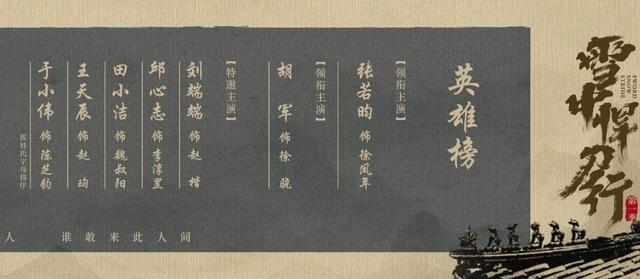 雪中悍刀行
SWORD
SNOW
STRIDE
第一季
英雄榜
【领衔主演】
张若昀 饰 徐凤年
【领衔主演】
胡军 饰 徐骁
【特邀主演】
刘端端 饰 赵楷
邱心志 饰 李淳罡
田小洁 饰 魏叔阳
王天辰 饰 赵珣
于小伟 饰 陈芝豹
按姓氏字母排序
人 谁敢来此人间